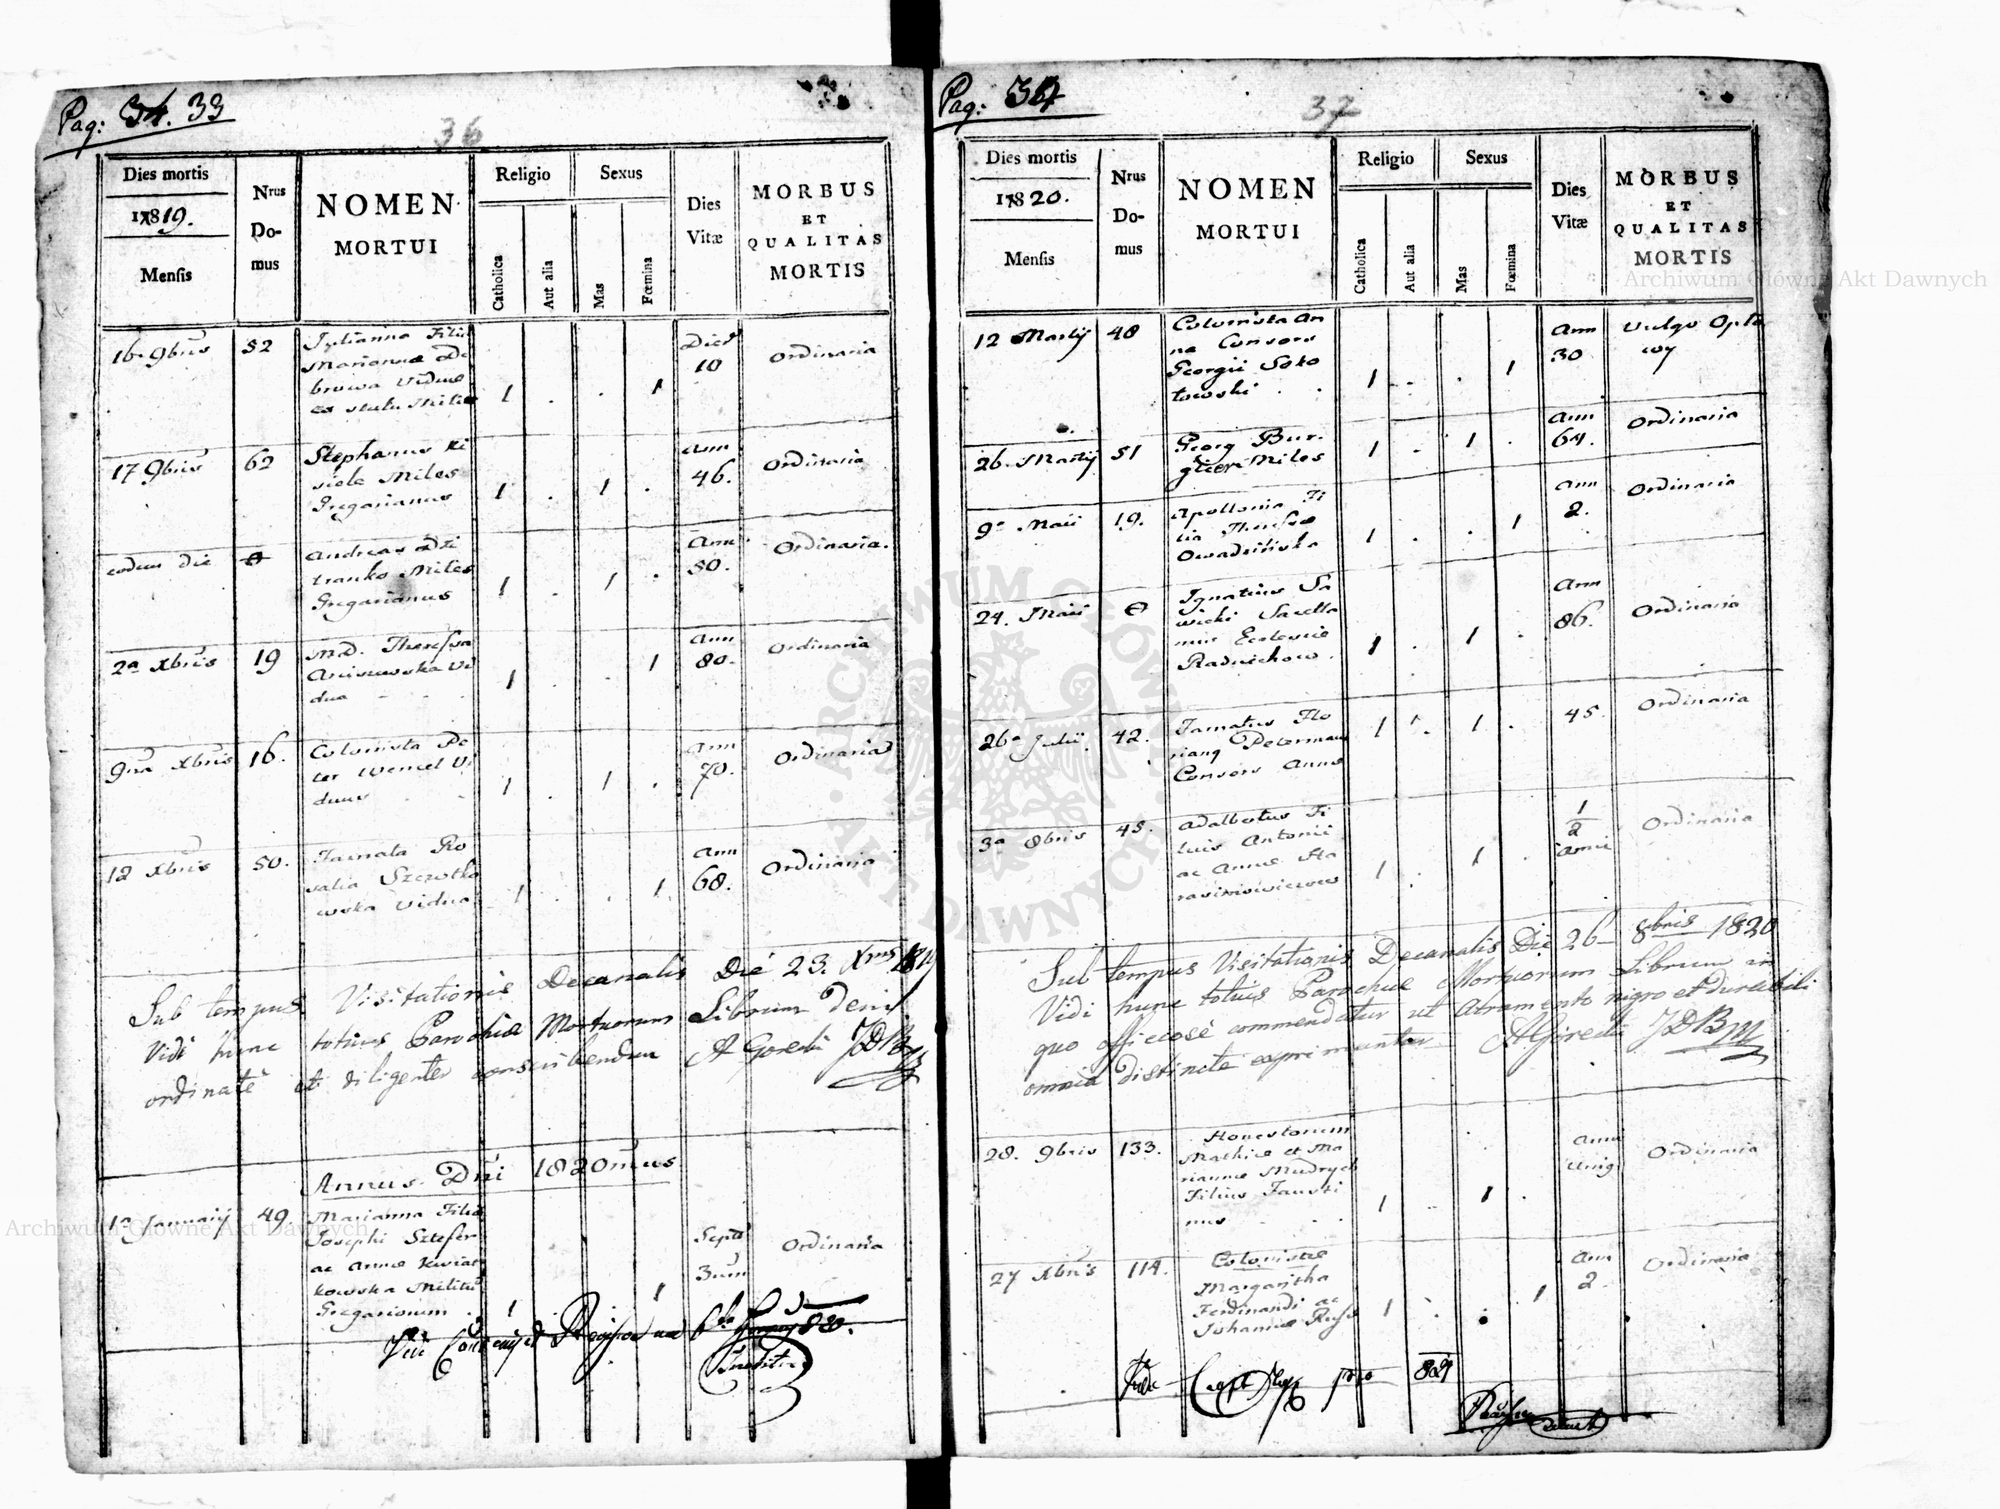 Pag: 34. 33
36
Dies mortis
1819.
Mensis
Nrus
Do-
mus
NOMEN
MORTUI
Religio
Catholica
Aut alia
Sexus
Mas
Fœmina
Dies
Vitæ
MORBUS
ET
QUALITAS
MORTIS
16 9bris 52 Julianna Filia
Marianna
viduae
1 . . 1
Dies
10
Ordinaria
17 9bris 62 Stephanus Ki
siele Miles
Gregarianus
1 . 1 .
Ann
46.
Ordinaria
eodem die 0 Andreas Dzi
tranko Miles
Gregarianus
1 . 1 .
Ann
50.
Ordinaria.
2a Xbris 19 Theressa
Vi
dua
1 . . 1
Ann
80.
Ordinaria
9na Xbris 16. Colonista Pe
ter Wencel Vi
duus
1 . 1 .
Ann
70.
Ordinaria
12 Xbris 50. Famata Ro
salia Szczotko
wska Vidua
1 . . 1
Ann
68.
Ordinaria
Sub tempus Visitationis Decanalis Die 23. Xbris 1819
Vidi hunc totius Parochiae Mortuorum Librum dein
ordinatè et diligenter conscribendum A Gorecki JDBM
Annus Dni 1820mus
1a Januarij 49 Marianna Filia
Josephi Sztefer
ac Annae Kwiat
kowska Militis
Gregarionum
1 1
Sept
3um
Ordinaria
Vidi
Pag: 34
37
Dies mortis
1820.
Mensis
Nrus
Do-
mus
NOMEN
MORTUI
Religio
Catholica
Aut alia
Sexus
Mas
Fœmina
Dies
Vitæ
MORBUS
ET
QUALITAS
MORTIS
12 Martij 48 Colonista An
na Consors
Georgii Soko
towski
1 . . 1
Ann
30
Vulgo Opta
wy
26. Martij 51 Georg Bur.
glieri Miles
1 . 1 .
Ann
64.
Ordinaria
9a Maii 19. Apollonia Fi
lia Theresae
Owadzińska
1 . . 1
Ann
2.
Ordinaria
24. Maii 0 Ignatius Sa
wicki Sacella
nus Ecclesiae
Radziechow.
1 . 1 .
Ann
86.
Ordinaria
26a Julii 42. Famatus Flo
riang Peterman
Consors Annae
1 . 1 .
45.
Ordinaria
3a 8bris 45. Adalbertus Fi
lius Antonii
ac Annae Ha
rasimowiczow
1 . 1 .
1
2
anni
Ordinaria
Sub tempus Visitationis Decanalis Die 26 8bris 1820
Vidi hunc totius Parochiae Mortuorum Librum in
quo officiosè commendatur ut Atramento nigro et durabili
omnia distincte exprimantur A Gorecki JDBM
28. 9bris 133. Honestorum
Mathiae et Ma
riannae Mudryck
Filius Fausti
nus
1 1 .
Ordinaria
27 Xbris 114. Colonistae
Margaritha
Ferdinandi ac
Johannae Russ
1 . . 1
Ann
2.
Ordinaria
821
Archiwum Główne Akt Dawnych
Archiwum Główne Akt Dawnych
ARCHIWUM GŁÓWNE
AKT DAWNYCH